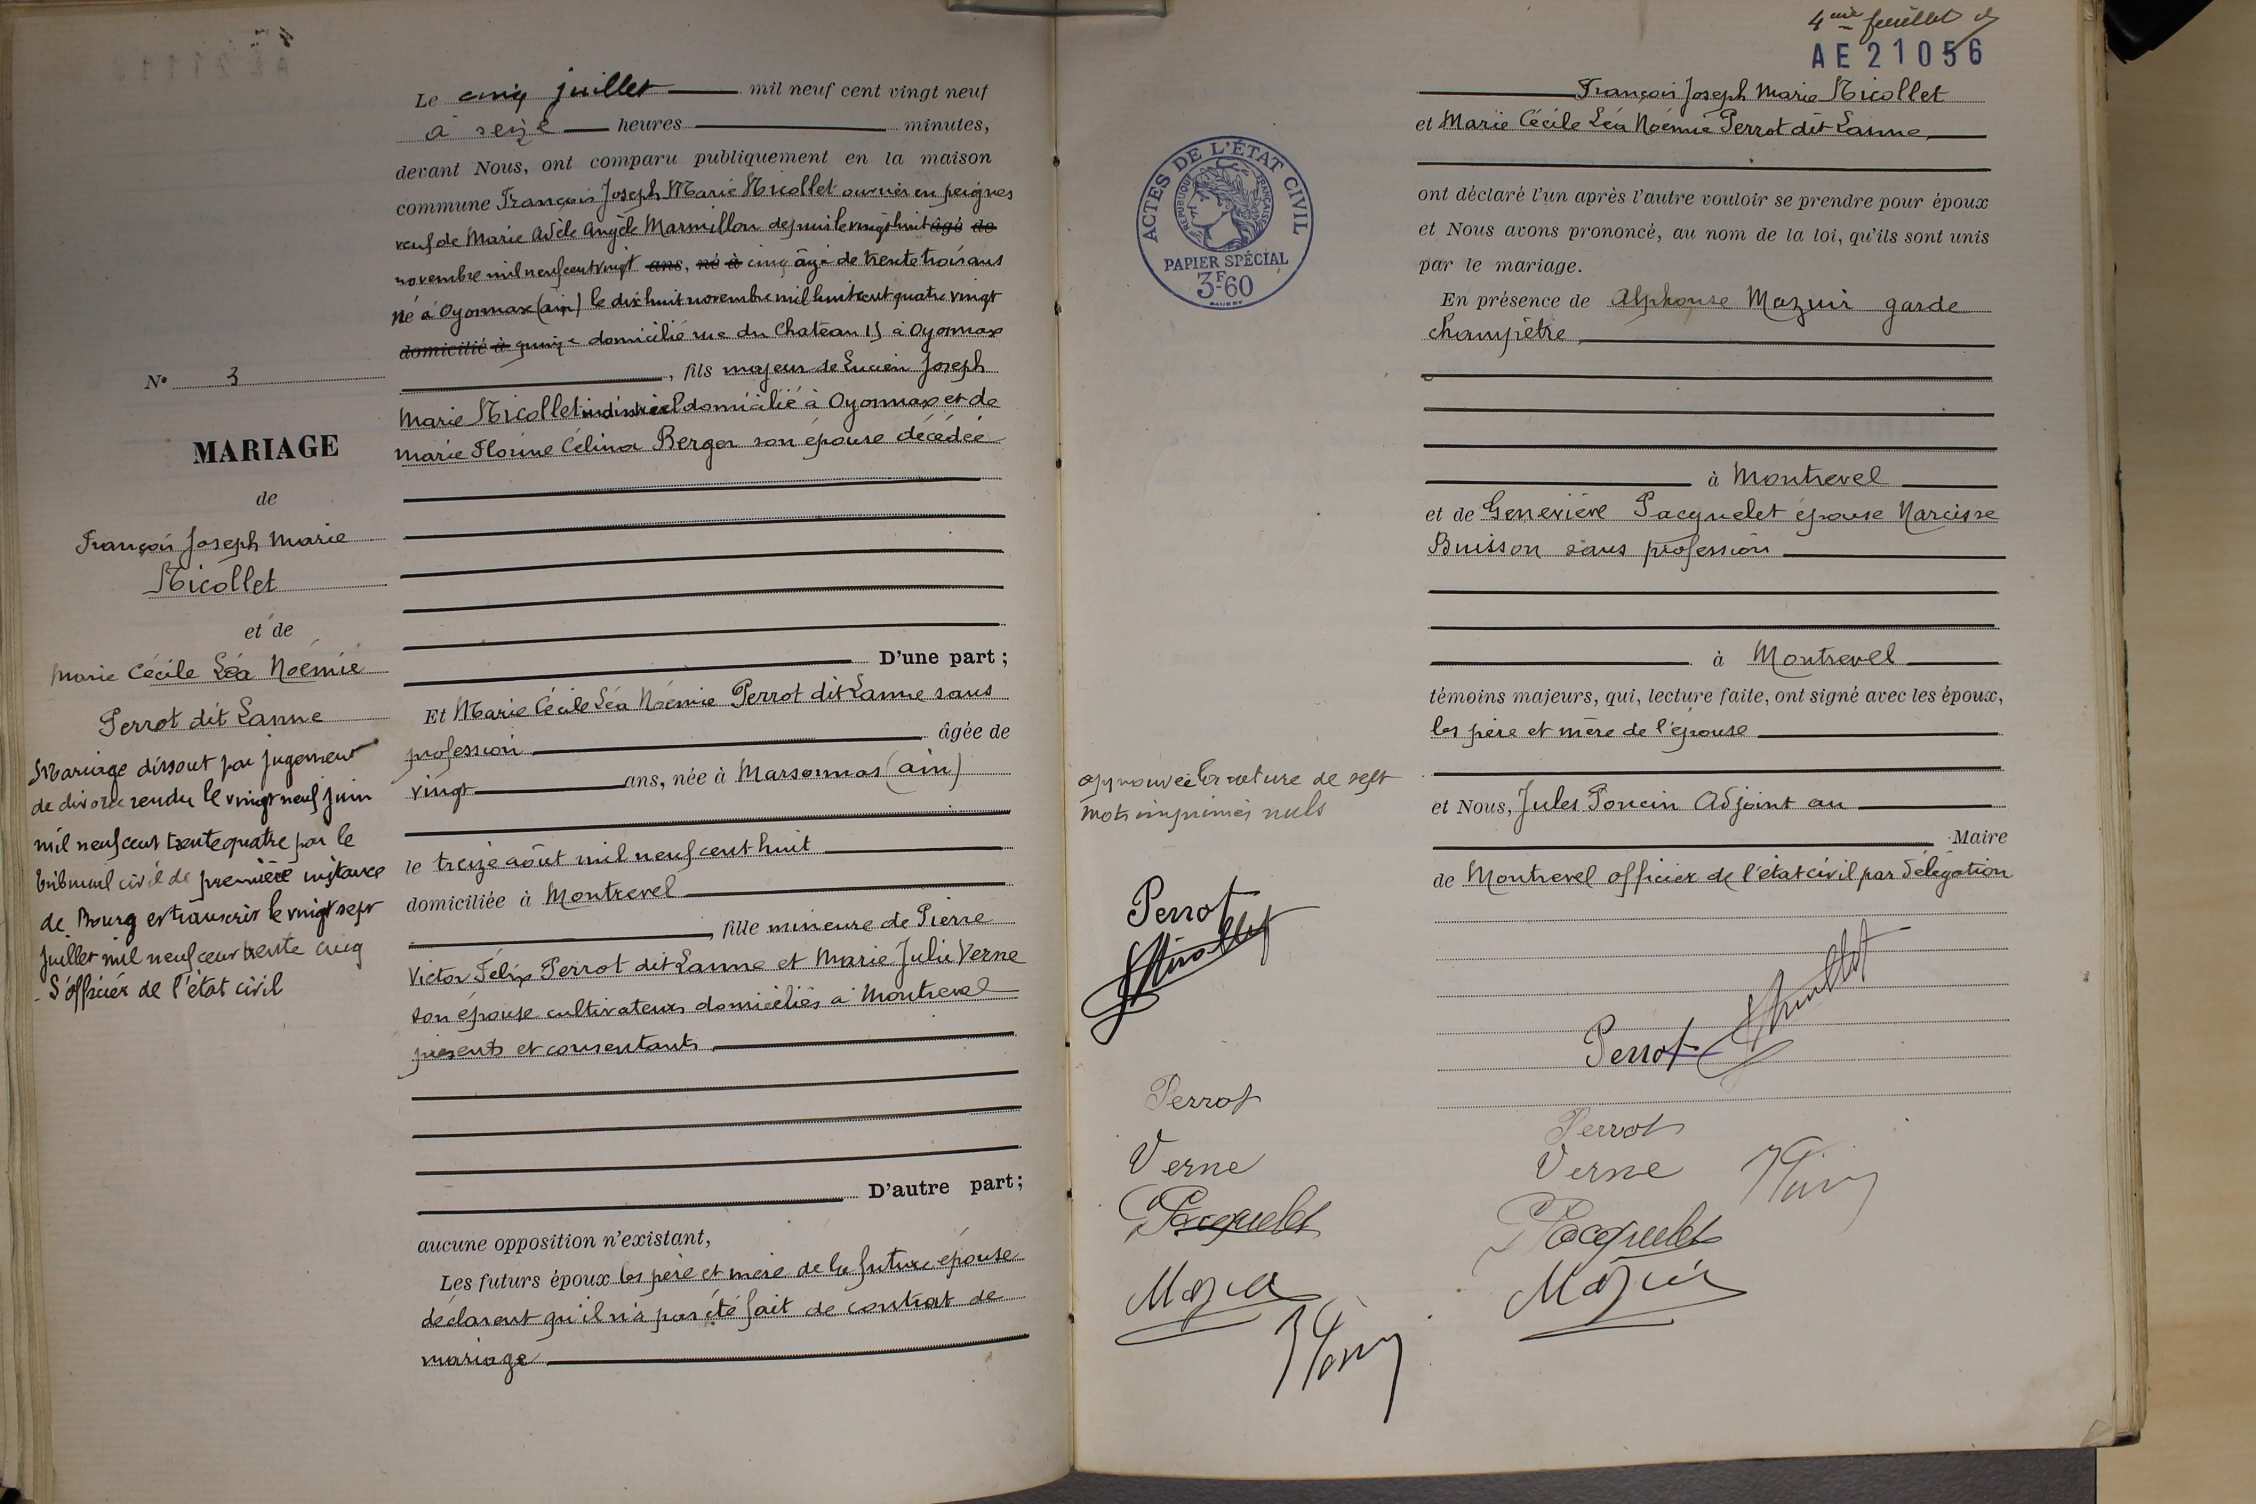 N° 3
MARIAGE
de
François Joseph Marie
Nicollet
et de
Marie Cécile Léa Noémie
Perrot dit Lanne
Mariage dissout par jugement
de divorce rendu le vingt neuf juin
mil neuf cent trente quatre par le
tribunal civil de première instance
de Bourg et transcrit le vingt sept
juillet mil neuf cent trente cinq
L'officier de l'état civil
Le cinq juillet mil neuf cent vingt neuf
à seize heures minutes,
devant Nous, ont comparu publiquement en la maison
commune François Joseph Marie Nicollet ouvrier en peignes
veuf de Marie Adèle Angèle Marmillon depuis le vingt huit âgé de
novembre mil neuf cent vingt ans, né à cinq âgé de trente trois ans
né à Oyonnax (ain) le dix huit novembre mil huit cent quatre vingt
domicilié à quinze domicilié rue du Chateau 15 à Oyonnax
, fils majeur de Lucien Joseph
Marie Nicollet industriel domicilié à Oyonnax et de
Marie Florine Célina Berger son épouse décédée
D'une part ;
Et Marie Cécile Léa Noémie Perrot dit Lanne sans
profession âgée de
vingt ans, née à Marsonnas (ain)
le treize août mil neuf cent huit
domiciliée à Montrevel
, fille mineure de Pierre
Victor Félix Perrot dit Lanne et Marie Julie Verne
son épouse cultivateurs domiciliés à Montrevel
présents et consentants
D'autre part ;
aucune opposition n'existant,
Les futurs époux les père et mère de la future épouse
déclarent qu'il n'a pas été fait de contrat de
mariage
4me feuillet
AE 21056
ACTES DE L'ÉTAT CIVIL
RÉPUBLIQUE FRANÇAISE
PAPIER SPÉCIAL
3F60
François Joseph Marie Nicollet
et Marie Cécile Léa Noémie Perrot dit Lanne
ont déclaré l'un après l'autre vouloir se prendre pour époux
et Nous avons prononcé, au nom de la loi, qu'ils sont unis
par le mariage.
En présence de Alphonse Mazuir garde
champêtre
à Montrevel
et de Geneviève Pacquelet épouse Narcisse
Buisson sans profession
à Montrevel
témoins majeurs, qui, lecture faite, ont signé avec les époux,
les père et mère de l'épouse
approuvée la rature de sept
mots imprimés nuls
et Nous, Jules Poncin Adjoint au
Maire
de Montrevel officier de l'état civil par délégation
Perrot
Nicollet
Perrot
Verne
Pacquelet
Perrot Nicollet
Perrot
Verne
Pacquelet
Mazuir